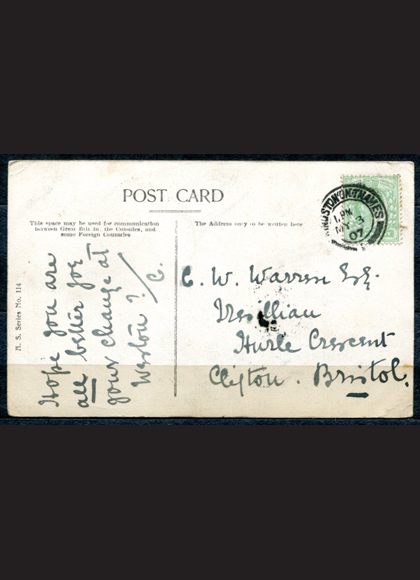 POST CARD
This space may be used for communication
between Great Britain, the Colonies, and
some Foreign Countries
The Address only to be written here
KINGSTON-ON-THAMES
1.PM
3
07
Hope you are
all better for
your change at
Weston?
C.
C. W. Warren Esq.
Hurle Crescent
Clifton. Bristol.
Series No. 114